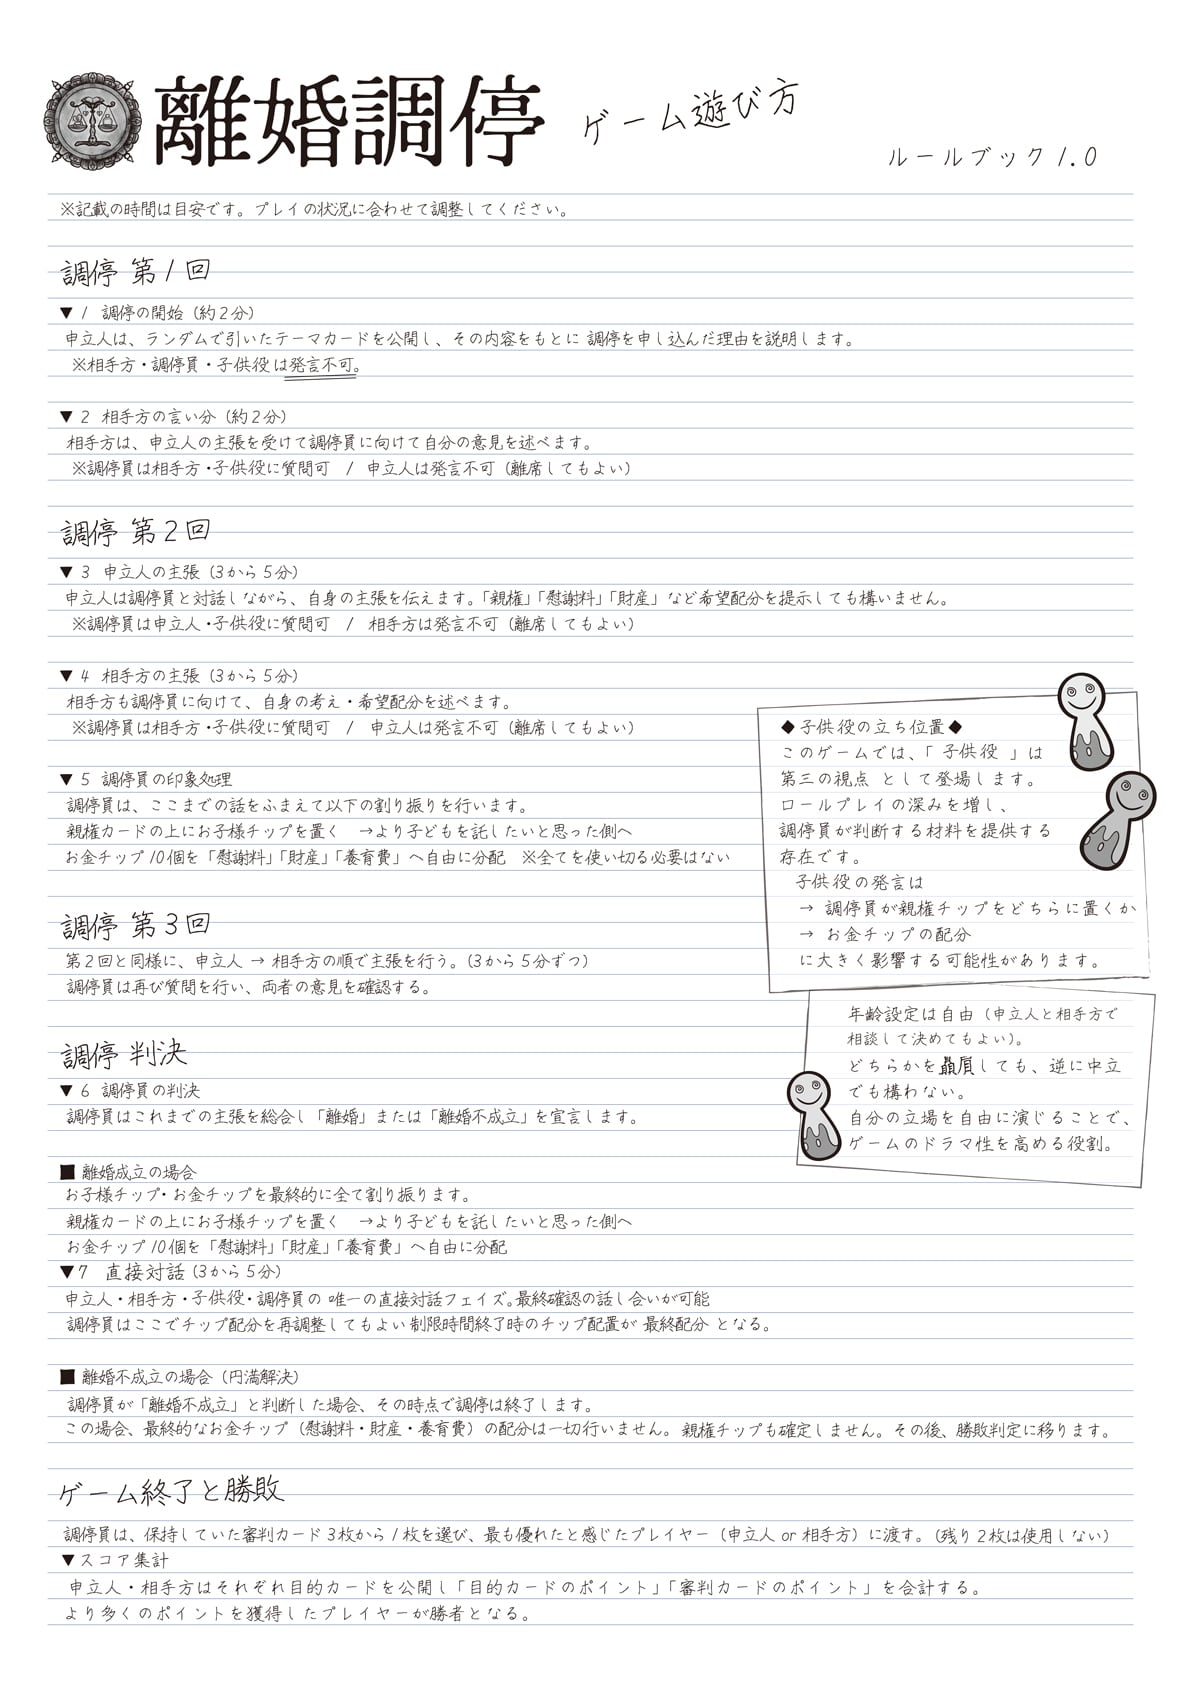 離婚調停 ゲーム遊び方
ルールブック1.0
※記載の時間は目安です。プレイの状況に合わせて調整してください。
調停 第1回
▼1 調停の開始（約2分）
申立人は、ランダムで引いたテーマカードを公開し、その内容をもとに 調停を申し込んだ理由を説明します。
※相手方・調停員・子供役は発言不可。
▼2 相手方の言い分（約2分）
相手方は、申立人の主張を受けて調停員に向けて自分の意見を述べます。
※調停員は相手方・子供役に質問可 / 申立人は発言不可（離席してもよい）
調停 第2回
▼3 申立人の主張（3から5分）
申立人は調停員と対話しながら、自身の主張を伝えます。「親権」「慰謝料」「財産」など希望配分を提示しても構いません。
※調停員は申立人・子供役に質問可 / 相手方は発言不可（離席してもよい）
▼4 相手方の主張（3から5分）
相手方も調停員に向けて、自身の考え・希望配分を述べます。
※調停員は相手方・子供役に質問可 / 申立人は発言不可（離席してもよい）
▼5 調停員の印象処理
調停員は、ここまでの話をふまえて以下の割り振りを行います。
親権カードの上にお子様チップを置く →より子どもを託したいと思った側へ
お金チップ10個を「慰謝料」「財産」「養育費」へ自由に分配 ※全てを使い切る必要はない
◆子供役の立ち位置◆
このゲームでは、「 子供役 」は
第三の視点 として登場します。
ロールプレイの深みを増し、
調停員が判断する材料を提供する
存在です。
子供役の発言は
→ 調停員が親権チップをどちらに置くか
→ お金チップの配分
に大きく影響する可能性があります。
調停 第3回
第2回と同様に、申立人 → 相手方の順で主張を行う。（3から5分ずつ）
調停員は再び質問を行い、両者の意見を確認する。
年齢設定は自由（申立人と相手方で
相談して決めてもよい）。
どちらかを贔屓しても、逆に中立
でも構わない。
自分の立場を自由に演じることで、
ゲームのドラマ性を高める役割。
調停 判決
▼6 調停員の判決
調停員はこれまでの主張を総合し「離婚」または「離婚不成立」を宣言します。
■ 離婚成立の場合
お子様チップ・お金チップを最終的に全て割り振ります。
親権カードの上にお子様チップを置く →より子どもを託したいと思った側へ
お金チップ10個を「慰謝料」「財産」「養育費」へ自由に分配
▼7 直接対話（3から5分）
申立人・相手方・子供役・調停員の 唯一の直接対話フェイズ。最終確認の話し合いが可能
調停員はここでチップ配分を再調整してもよい 制限時間終了時のチップ配置が 最終配分 となる。
■ 離婚不成立の場合（円満解決）
調停員が「離婚不成立」と判断した場合、その時点で調停は終了します。
この場合、最終的なお金チップ（慰謝料・財産・養育費）の配分は一切行いません。親権チップも確定しません。その後、勝敗判定に移ります。
ゲーム終了と勝敗
調停員は、保持していた審判カード3枚から1枚を選び、最も優れたと感じたプレイヤー（申立人 or 相手方）に渡す。（残り2枚は使用しない）
▼スコア集計
申立人・相手方はそれぞれ目的カードを公開し「目的カードのポイント」「審判カードのポイント」を合計する。
より多くのポイントを獲得したプレイヤーが勝者となる。